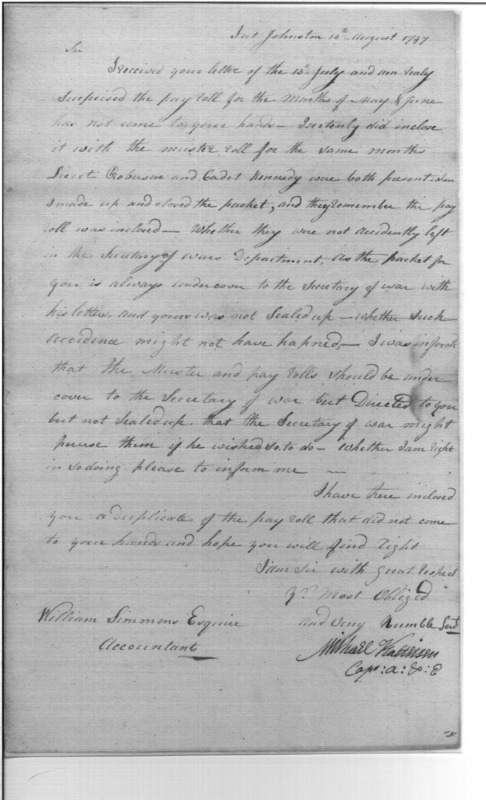 Fort Johnston 12th August 1797
Sir
I received your letter of the 15th July and am realy
Surprised the pay roll for the months of May & June
has not come to your hands – I certenly did inclose
it with the muster roll for the same months
Lieut Robinson and Cadet Kennedy were both present when
I made up and closed the packet, and they remember the pay
roll was inclosed – Whether they were not accidently left
in the Secretary of wars Department, as the packet for
you is always under cover to the Secretary of war with
his letters, and yours was not Sealed up – whether such
accidence might not have hapned, – I was inform'd
that the Muster and pay rolls should be under
cover to the Secretary of war but Directed to you
but not Sealed up, that the Secretary of war might
peruse them if he wished so to do – Whether I am right
in so doing please to inform me –
I have here inclosed
you a duplicate of the pay roll that did not come
to your hands and hope you will find right
I am Sir with great respect
Yr most Obliged
and very humble Servt
William Simmons Esquire
Accountant
Michael Kalteisen
Capt: a: & E